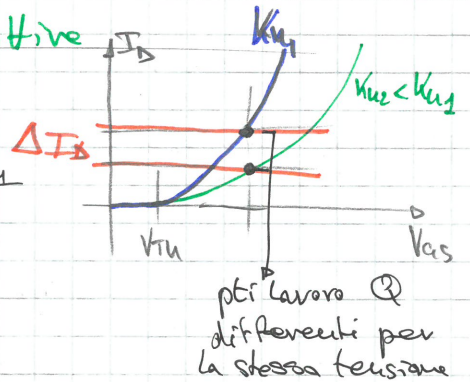 Hive
I_D
Kn1
Kn2 < Kn1
ΔI_D
1
VTH
VGS
pti lavoro Q
differenti per
la stessa tensione